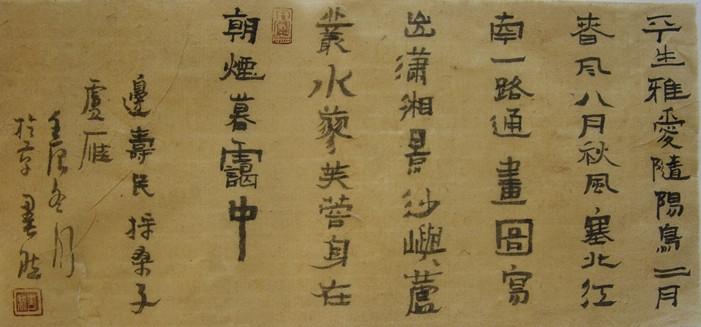 平生雅愛隨陽鳥二月
春风八月秋風、塞北江
南一路通畫圖寫
出瀟湘景沙嶼、蘆
叢水蓼芙蓉身在
朝煙暮靄中
邊壽民採桑子
盧雁
壬辰冬月
於京